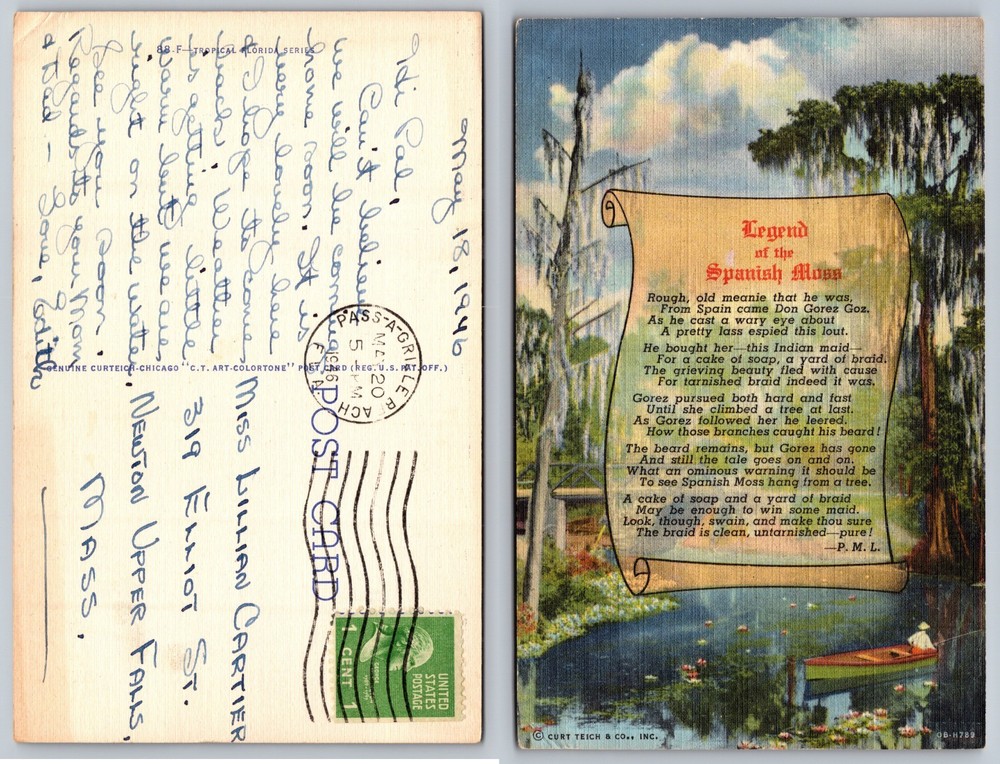 88.F—TROPICAL FLORIDA SERIES
May 18, 1946
Hi Pal,
Can't believe
we will be coming
home soon. It is
very lovely here
& I hope to come
back. Weather
is getting little
warm but we are
right on the water.
See you soon.
Regards to your Mom
& Dad - Love, Edith
GENUINE CURTEICH-CHICAGO "C.T. ART-COLORTONE" POST CARD (REG. U.S. PAT. OFF.)
POST CARD
PASS-A-GRILLE BEACH
FLA.
MAY 20
5 PM
1946
UNITED
STATES
POSTAGE
1 CENT 1
MISS LILLIAN CARTIER
319 ELLIOT ST.
NEWTON UPPER FALLS,
MASS.
Legend
of the
Spanish Moss
Rough, old meanie that he was,
From Spain came Don Gorez Goz.
As he cast a wary eye about
A pretty lass espied this lout.
He bought her—this Indian maid—
For a cake of soap, a yard of braid.
The grieving beauty fled with cause
For tarnished braid indeed it was.
Gorez pursued both hard and fast
Until she climbed a tree at last.
As Gorez followed her he leered.
How those branches caught his beard!
The beard remains, but Gorez has gone
And still the tale goes on and on.
What an ominous warning it should be
To see Spanish Moss hang from a tree.
A cake of soap and a yard of braid
May be enough to win some maid.
Look, though, swain, and make thou sure
The braid is clean, untarnished—pure!
—P. M. L.
© CURT TEICH & CO., INC.
OB-H789